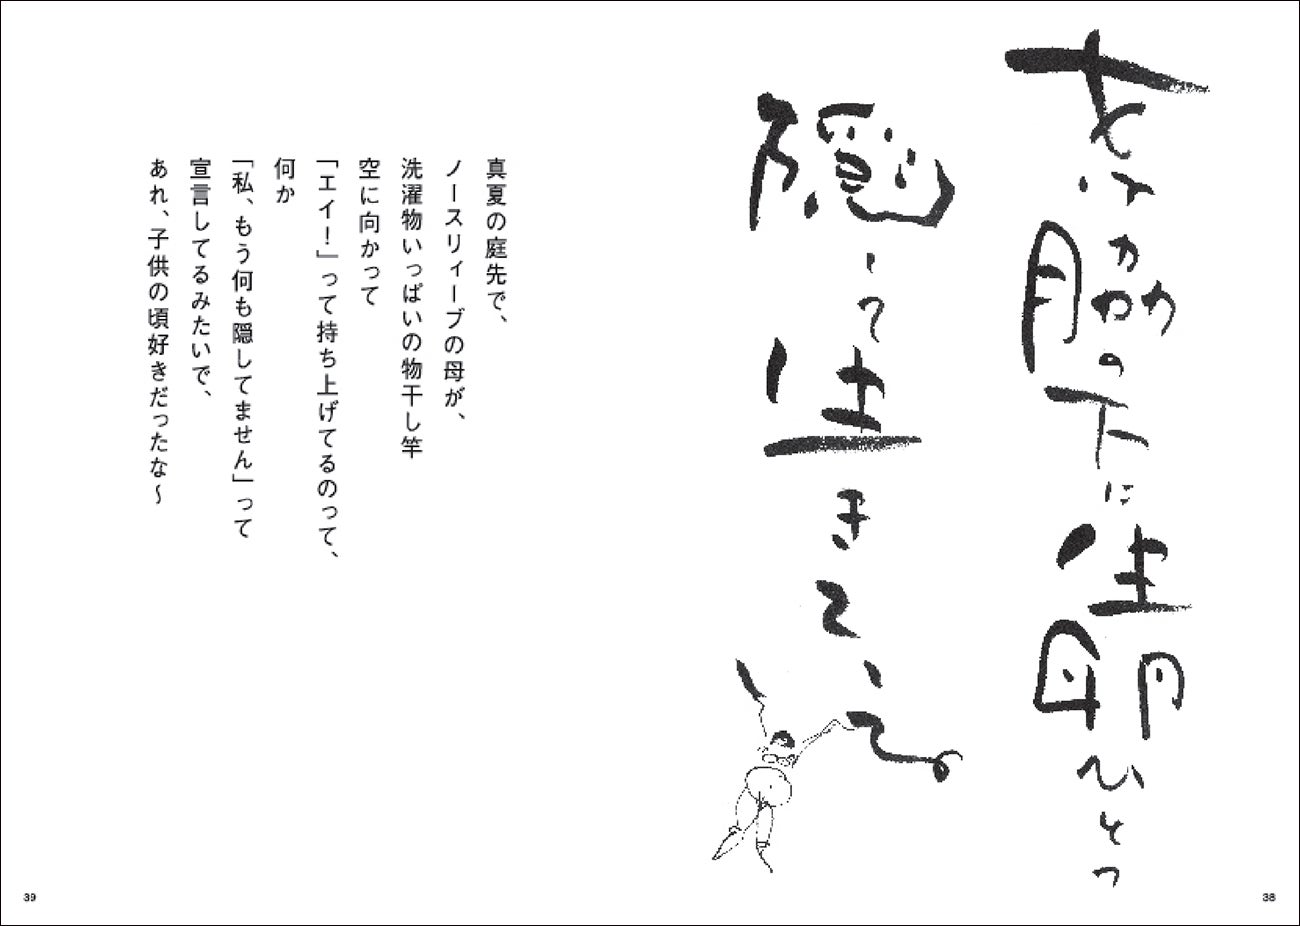 女は脇の下に生卵ひとつ
隠して生きている
真夏の庭先で、
ノースリィーブの母が、
洗濯物いっぱいの物干し竿
空に向かって
「エイ！」って持ち上げてるのって、
何か
「私、もう何も隠してません」って
宣言してるみたいで、
あれ、子供の頃好きだったな〜
39
38